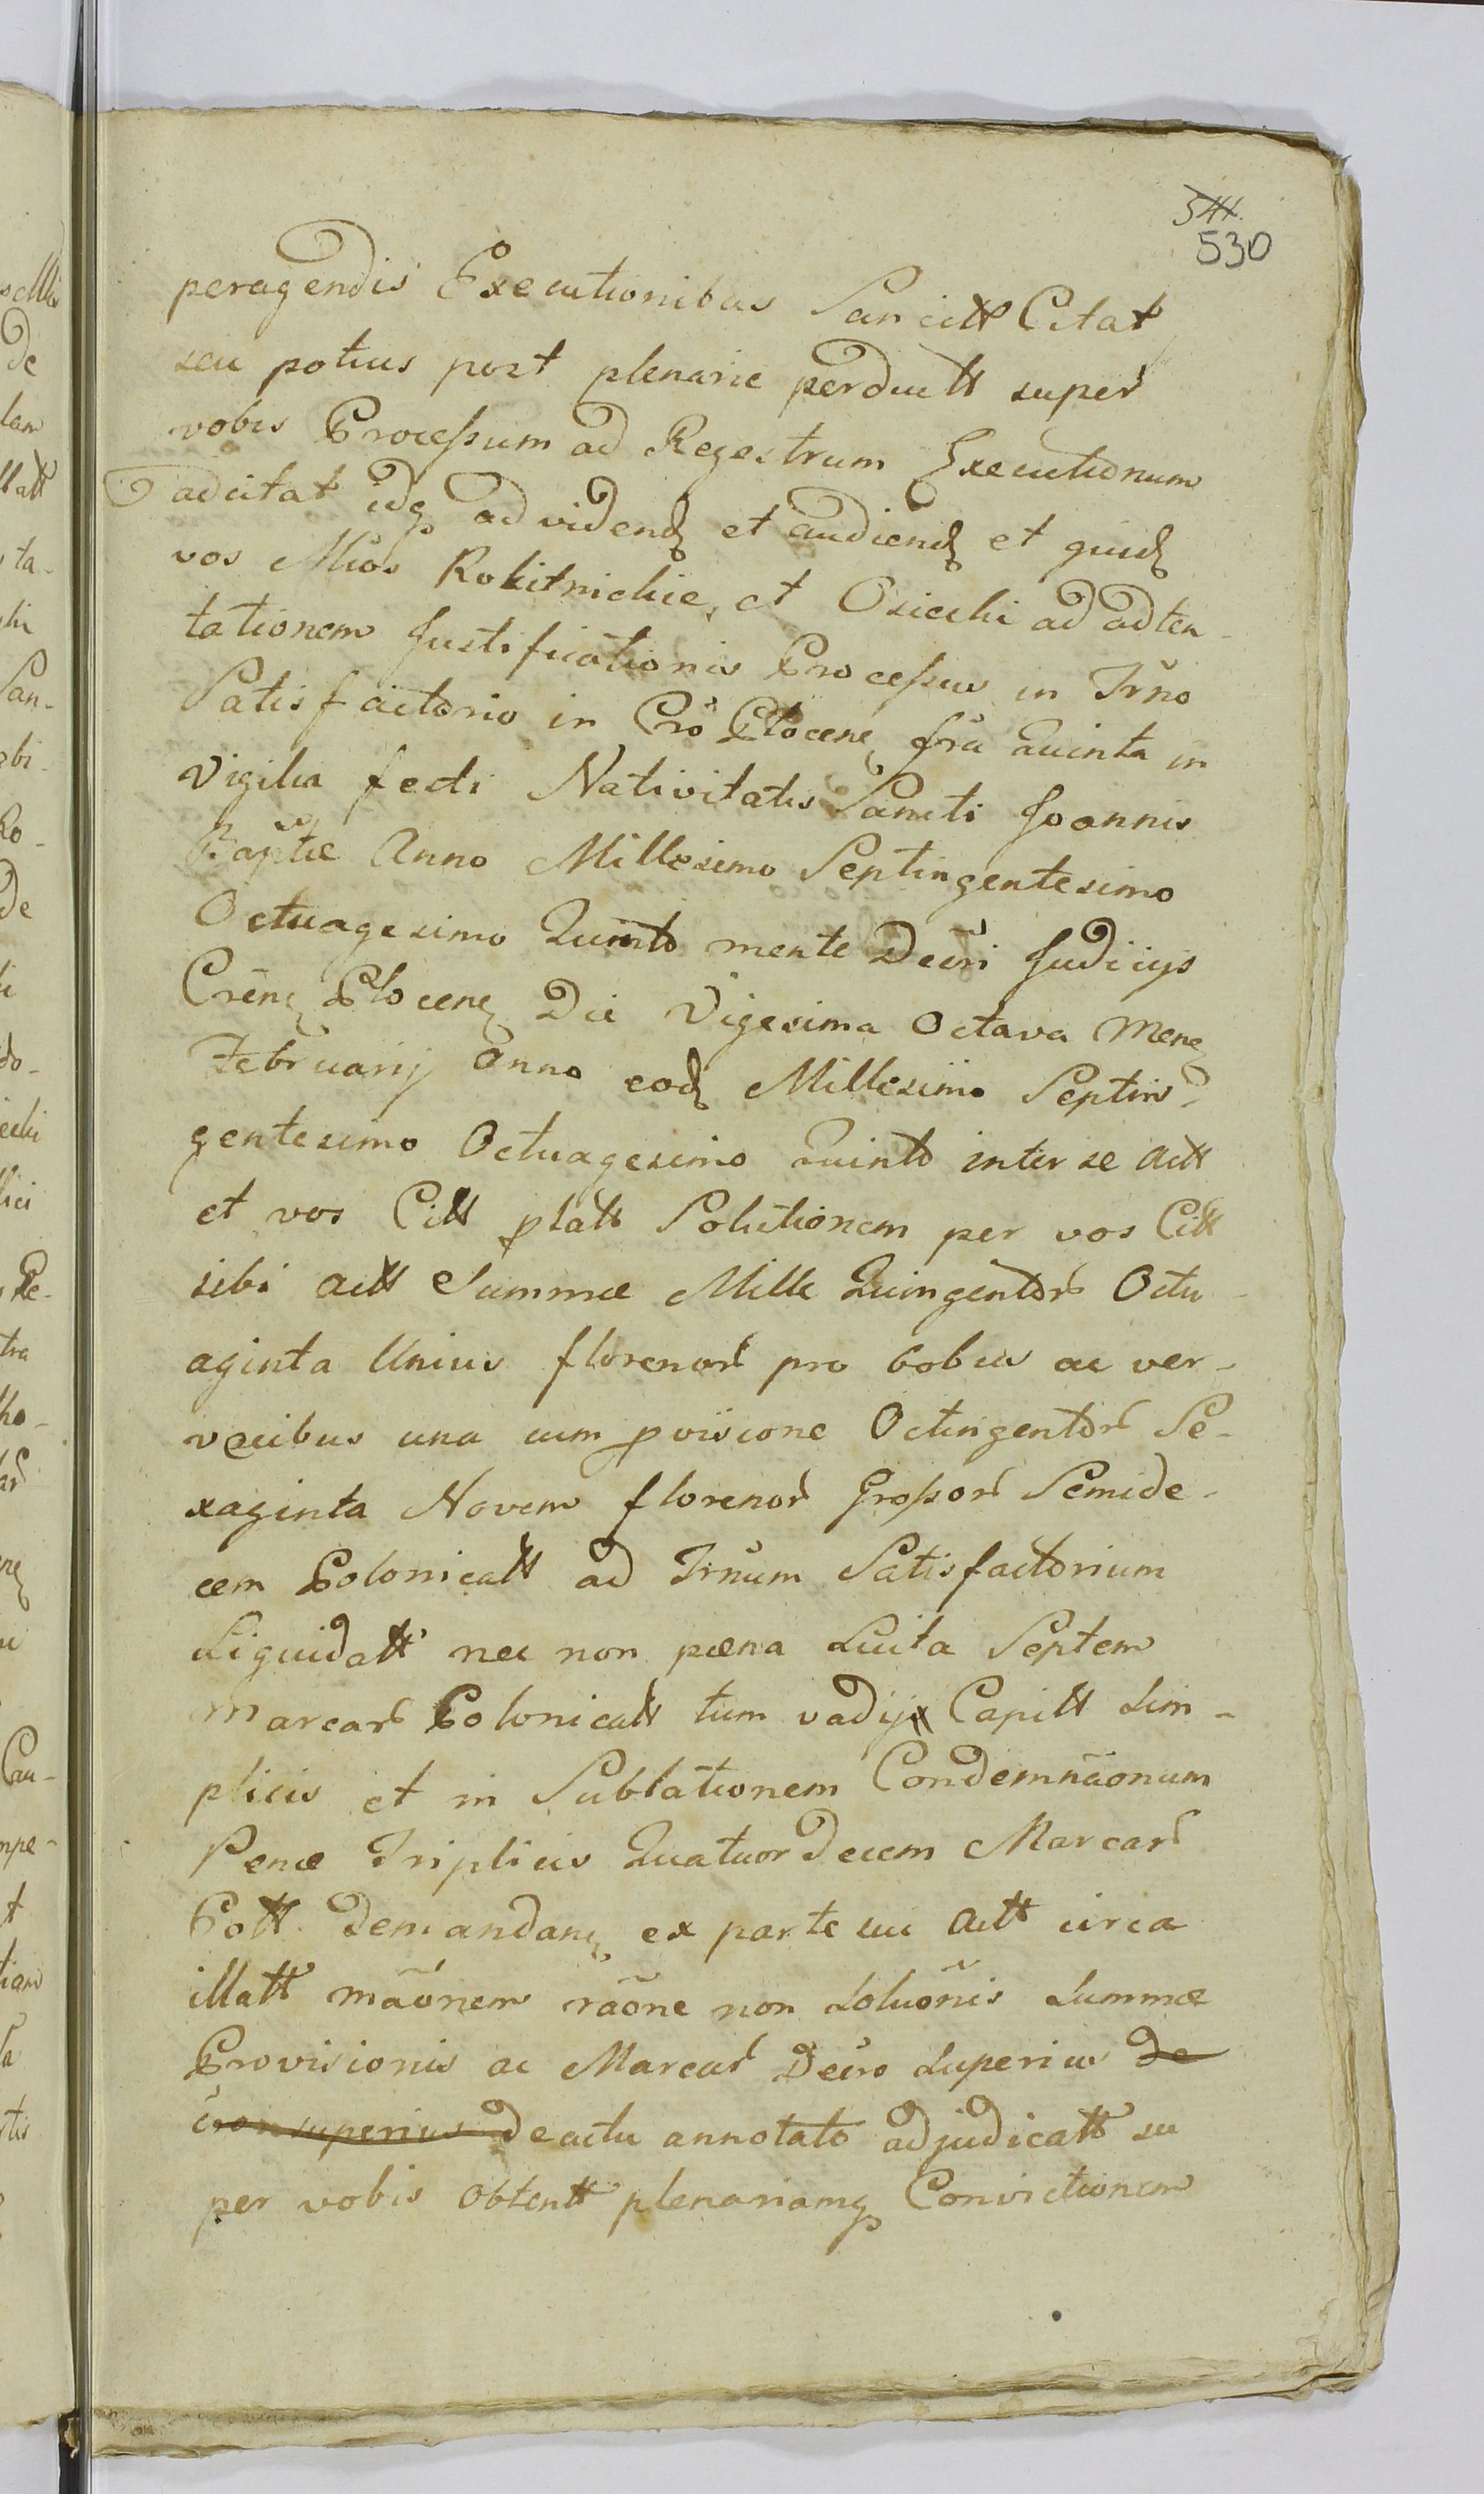 544.
530
peragendis Executionibus Sancitt Citat
seu potius post plenarie perductt super
vobis Processum ad Regestrum Executionum
adcitat idq ad videnđ et audienđ et quiđ
vos Mıcos Rokitnickie, et Osiecki ad adten-
tationem Justificationis Processus in Trno
Satisfactorio in Cro Plocenẽ fria Quinta in
Vigilia festi Nativitatis Sancti Joannis
Baptæ Anno Millesimo Septingentesimo
Octuagesimo Quinto mente Decri Judicijs
Crenẽ Plocenẽ Die Vigesima Octava Mensẽ
Februarij Anno eođ Millesimo Septin
gentesimo Octuagesimo Quinto inter se Actt
et vos Citt platt Solutionem per vos Citt
sibi Actt Summæ Mille Quingentor Octu-
aginta Unius florenor pro bobus ac ver-
vecibus una cum pvisione Octingentor Se-
xaginta Novem florenor Grossor Semide-
cem Polonicatt ad Trnum Satisfactorium
Liquidatt nec non pæna Luita Septem
Marcar Polonicatt tum vadij Capitt Sim-
plicis et in Sublationem Condemnãonum
Penæ Triplicis Quatuordecem Marcar
Pott. Demandanẽ ex parte sui Actt circa
illatt mãonem rãone non Soluõnis Summæ
Provisionis ac Marcar Decro Superius de
superius de actu annotato adjudicatt su
per vobis obtentt plenariamq Convictionem